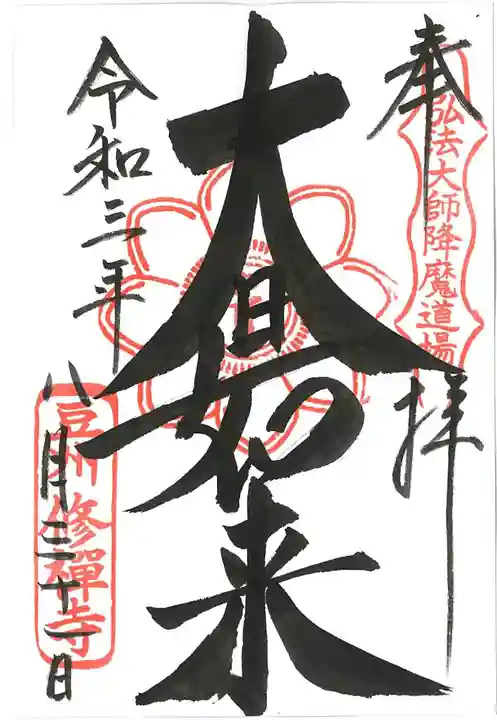 奉拝
弘法大師降魔道場
大日如来
令和三年
八月三十一日
豆州修禪寺